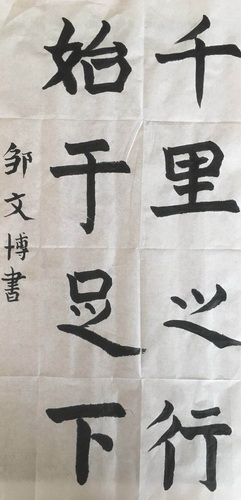 千里之行
始于足下
邹文博書